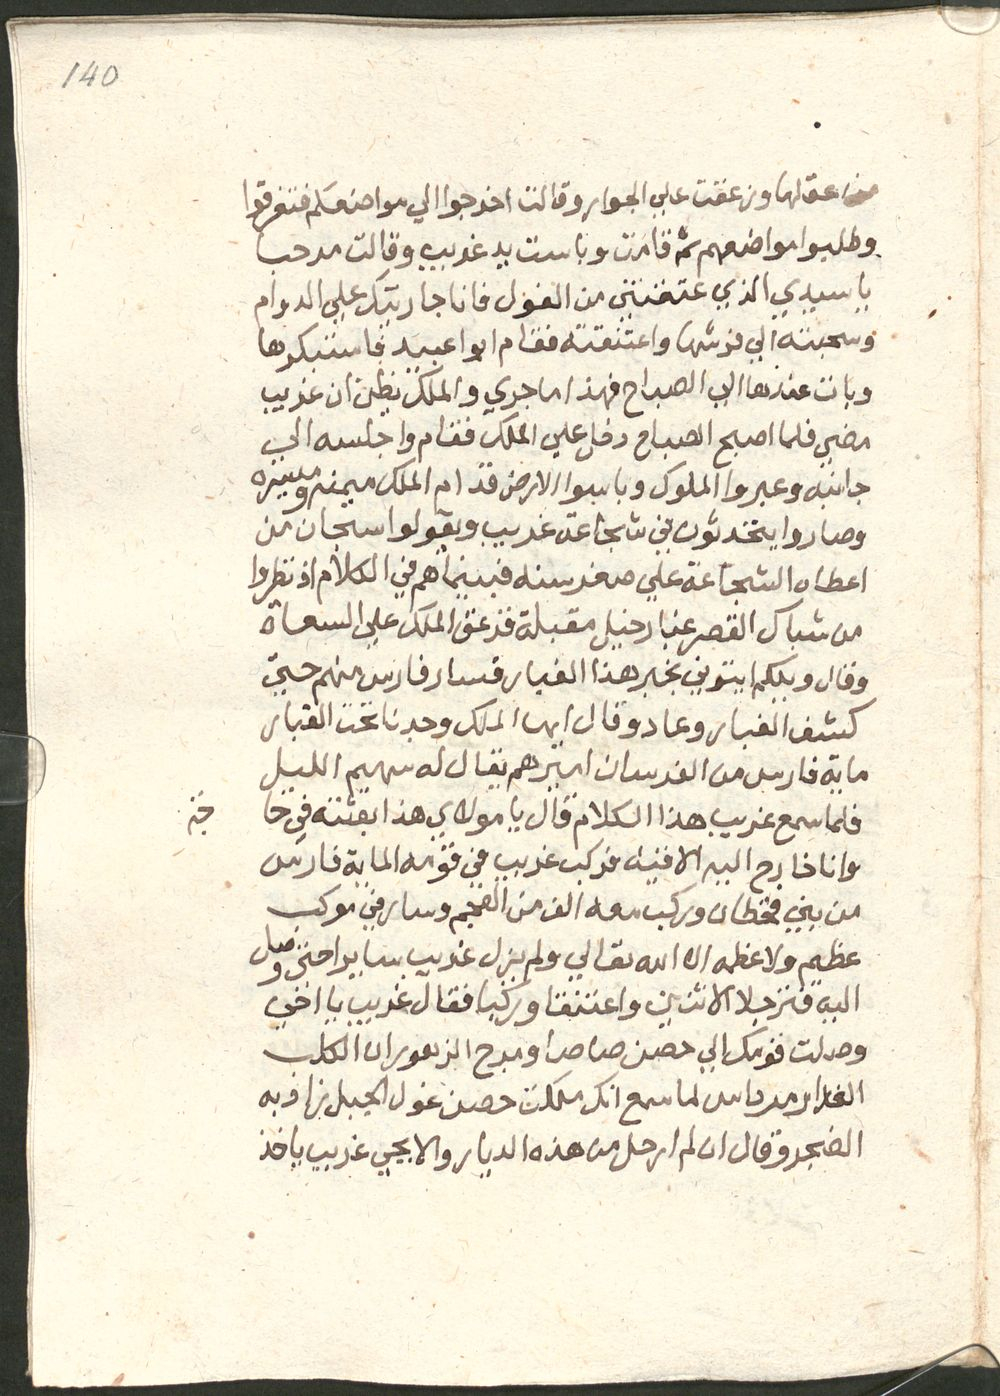 140
من عقلها وزعقت علي الجوار وقالت اخرجوا الي مواضعكم فتفرقوا
وطلبوا مواضعهم ثم قامت وباست يد غريب وقالت مرحبا
يا سيدي الذي عتقتني من الغول فانا جاريتك علي الدوام
وسحبته الي فرشها واعتنقته فقام ابوا عبيد فاستبكرها
وبات عندها الي الصباح فهذا ما جري والملك يظن ان غريب
مضي فلما اصبح الصباح دخل علي الملك فقام واجلسه الي
جانبه وعبروا الملوك وباسوا الارض قدام الملك ميمنه وميسره
وصاروا يتحدثون في شجاعة غريب ويقولوا سبحان من
اعطاه الشجاعة علي صغر سنه فبينماهم في الكلام اذ نظروا
من شباك القصر غبار خيل مقبلة فزعق الملك علي السعاة
وقال ويلكم ايتوني بخبر هذا الغبار فسار فارس منهم حتي
كشف الغبار وعاد وقال ايها الملك وجدنا تحت الغبار
ماية فارس من الفرسان اميرهم يقال له سهيم الليل
فلما سمع غريب هذا الكلام قال يا مولاي هذا بعثته في حا
جة
وانا خارج اليه لاقيه فركب غريب في قومه الماية فارس
من بني قحطان وركب معه الف من العجم وسار في موكب
عظيم ولا عظمه الا الله تعالي ولم يزل غريب سايرا حتي وصل
اليه فترجلا الاثنين واعتنقا وركبا فقال غريب يا اخي
وصلت قومك الي حصن صاصا ومرج الزهور ان الكلب
الغدار مرداس لما سمع انك ملكت حصن غول الجبل زاد به
الضجر وقال ان لم ارحل من هذه الديار والا يجي غريب ياخذ